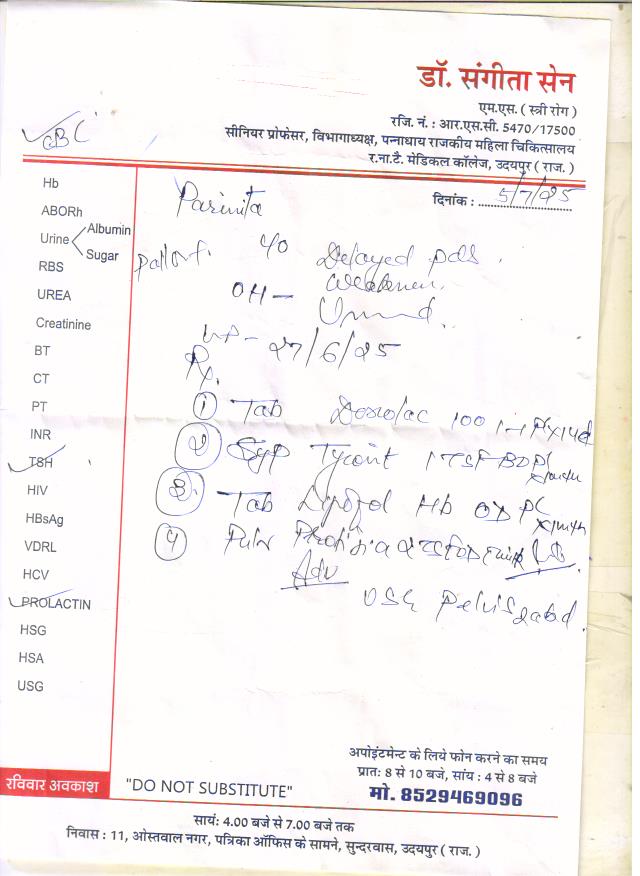 डॉ. संगीता सेन
एम.एस. ( स्त्री रोग )
रजि. नं. : आर.एस.सी. 5470/17500
सीनियर प्रोफेसर, विभागाध्यक्ष, पन्नाधाय राजकीय महिला चिकित्सालय
र.ना.टै. मेडिकल कॉलेज, उदयपुर ( राज. )
CBC
दिनांक : 5/7/25
Parinita
Hb
ABORh
Urine Albumin
Sugar
RBS
UREA
Creatinine
BT
CT
PT
INR
TSH
HIV
HBsAg
VDRL
HCV
PROLACTIN
HSG
HSA
USG
Delayed pds.
weakness.
OH -
27/6/25
Rx.
① Tab 100
② Syp
③ Tab Hb OD PC
④
Adv
USG Pelvis
अपोइंटमेन्ट के लिये फोन करने का समय
प्रातः 8 से 10 बजे, सांय : 4 से 8 बजे
मो. 8529469096
रविवार अवकाश
"DO NOT SUBSTITUTE"
सायं: 4.00 बजे से 7.00 बजे तक
निवास : 11, ओस्तवाल नगर, पत्रिका ऑफिस के सामने, सुन्दरवास, उदयपुर ( राज. )